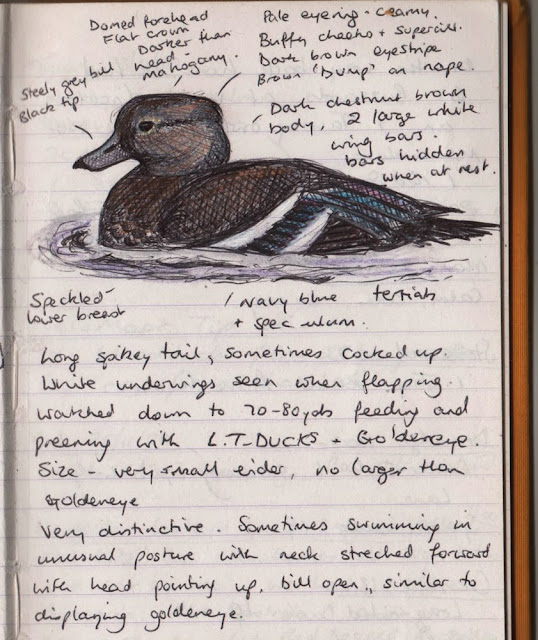 Domed forehead
Flat crown
Darker than
head -
mahogany.
Steely grey bill
Black tip.
Pale eyering - creamy.
Buffy cheeks + supercil.
Dark brown eyestripe
Brown 'Bump' on nape.
Dark chestnut brown
body, 2 large white
wing bars.
bars hidden
when at rest.
Speckled -
lower breast
Navy blue tertials
+ speculum.
Long spikey tail, sometimes cocked up.
White underwings seen when flapping.
Watched down to 70-80yds feeding and
preening with L.T-DUCKS + Goldeneye.
Size - very small eider, no larger than
Goldeneye
Very distinctive. Sometimes swimming in
unusual posture with neck streched forward
with head pointing up, bill open, similar to
displaying goldeneye.